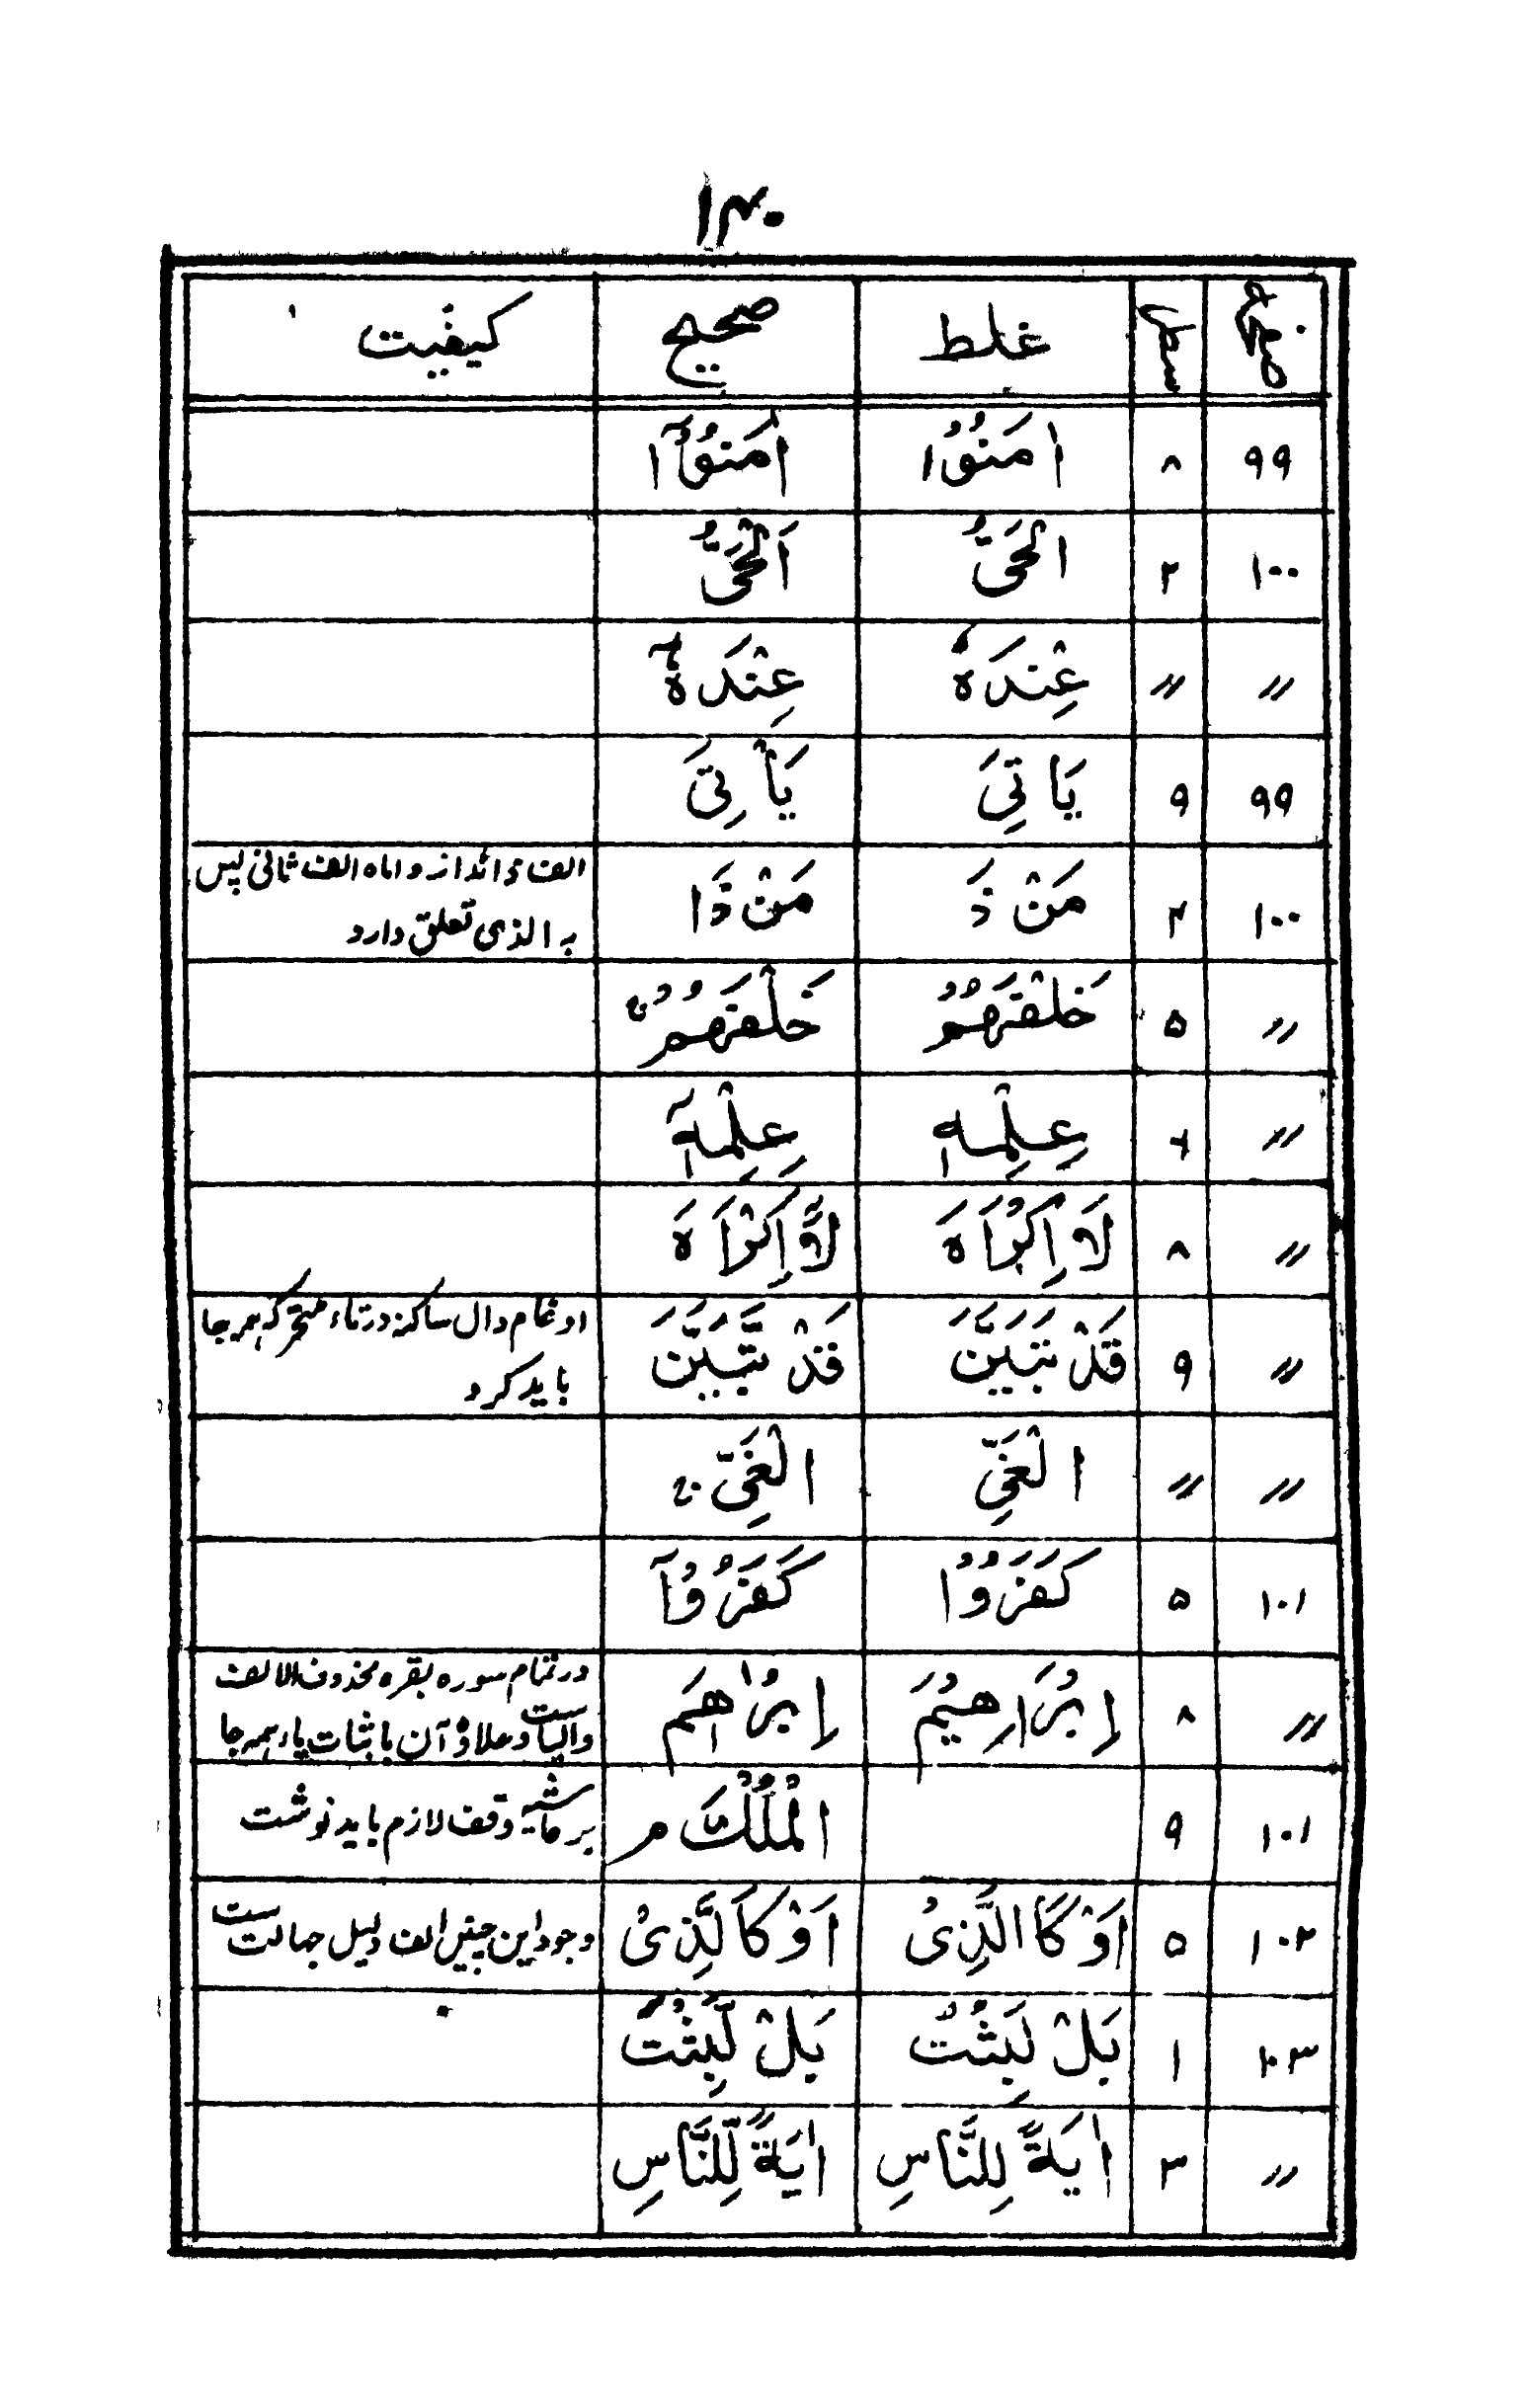 ۱۳۰
صفحہ سطر غلط صحیح کیفیت
۹۹ ۸ اٰمَنُوْا اٰمَنُوْٓا
۱۰۰ ۲ الْحَیُّ اَلْحَیُّ
〃 〃 عِنْدَهٗ عِنْدَهٗٓ
۹۹ ۹ یَاتِیَ یَاْتِیَ
۱۰۰ ۴ مَنْ ذَ مَنْ ذَا
به الذی تعلق دارد
〃 ۵ خَلْفَهُمْ خَلْفَهُمْ ۚ
〃 ۶ عِلْمِهٖ عِلْمِهٖٓ
〃 ۸ لَا اِکْرَاهَ لَآ اِکْرَاهَ
〃 ۹ قَدْ تَبَیَّنَ قَدْ تَّبَیَّنَ ادغام دال ساکنه در تاء متحرکه همه جا
باید کرد
〃 〃 الْغَیِّ الْغَیِّ ۚ
۱۰۱ ۵ کَفَرُوْا کَفَرُوْٓا
〃 ۸ اِبْرَاهِیْمَ اِبْرٰاهٖمَ در تمام سوره بقره محذوف الالف
والیاست و علاوۀ آن باثبات یاء همه جا
۱۰۱ ۹ الْمُلْكَ م بر حاشیه وقف لازم باید نوشت
۱۰۲ ۵ اَوْ کَا الَّذِیْ اَوْ کَا لَّذِیْ وجود این چنین الف دلیل جهالت ست
۱۰۳ ۱ بَلْ لَبِثْتَ بَلْ لَّبِثْتَ
〃 ۳ اٰیَةً لِلنَّاسِ اٰیَةً لِّلنَّاسِ